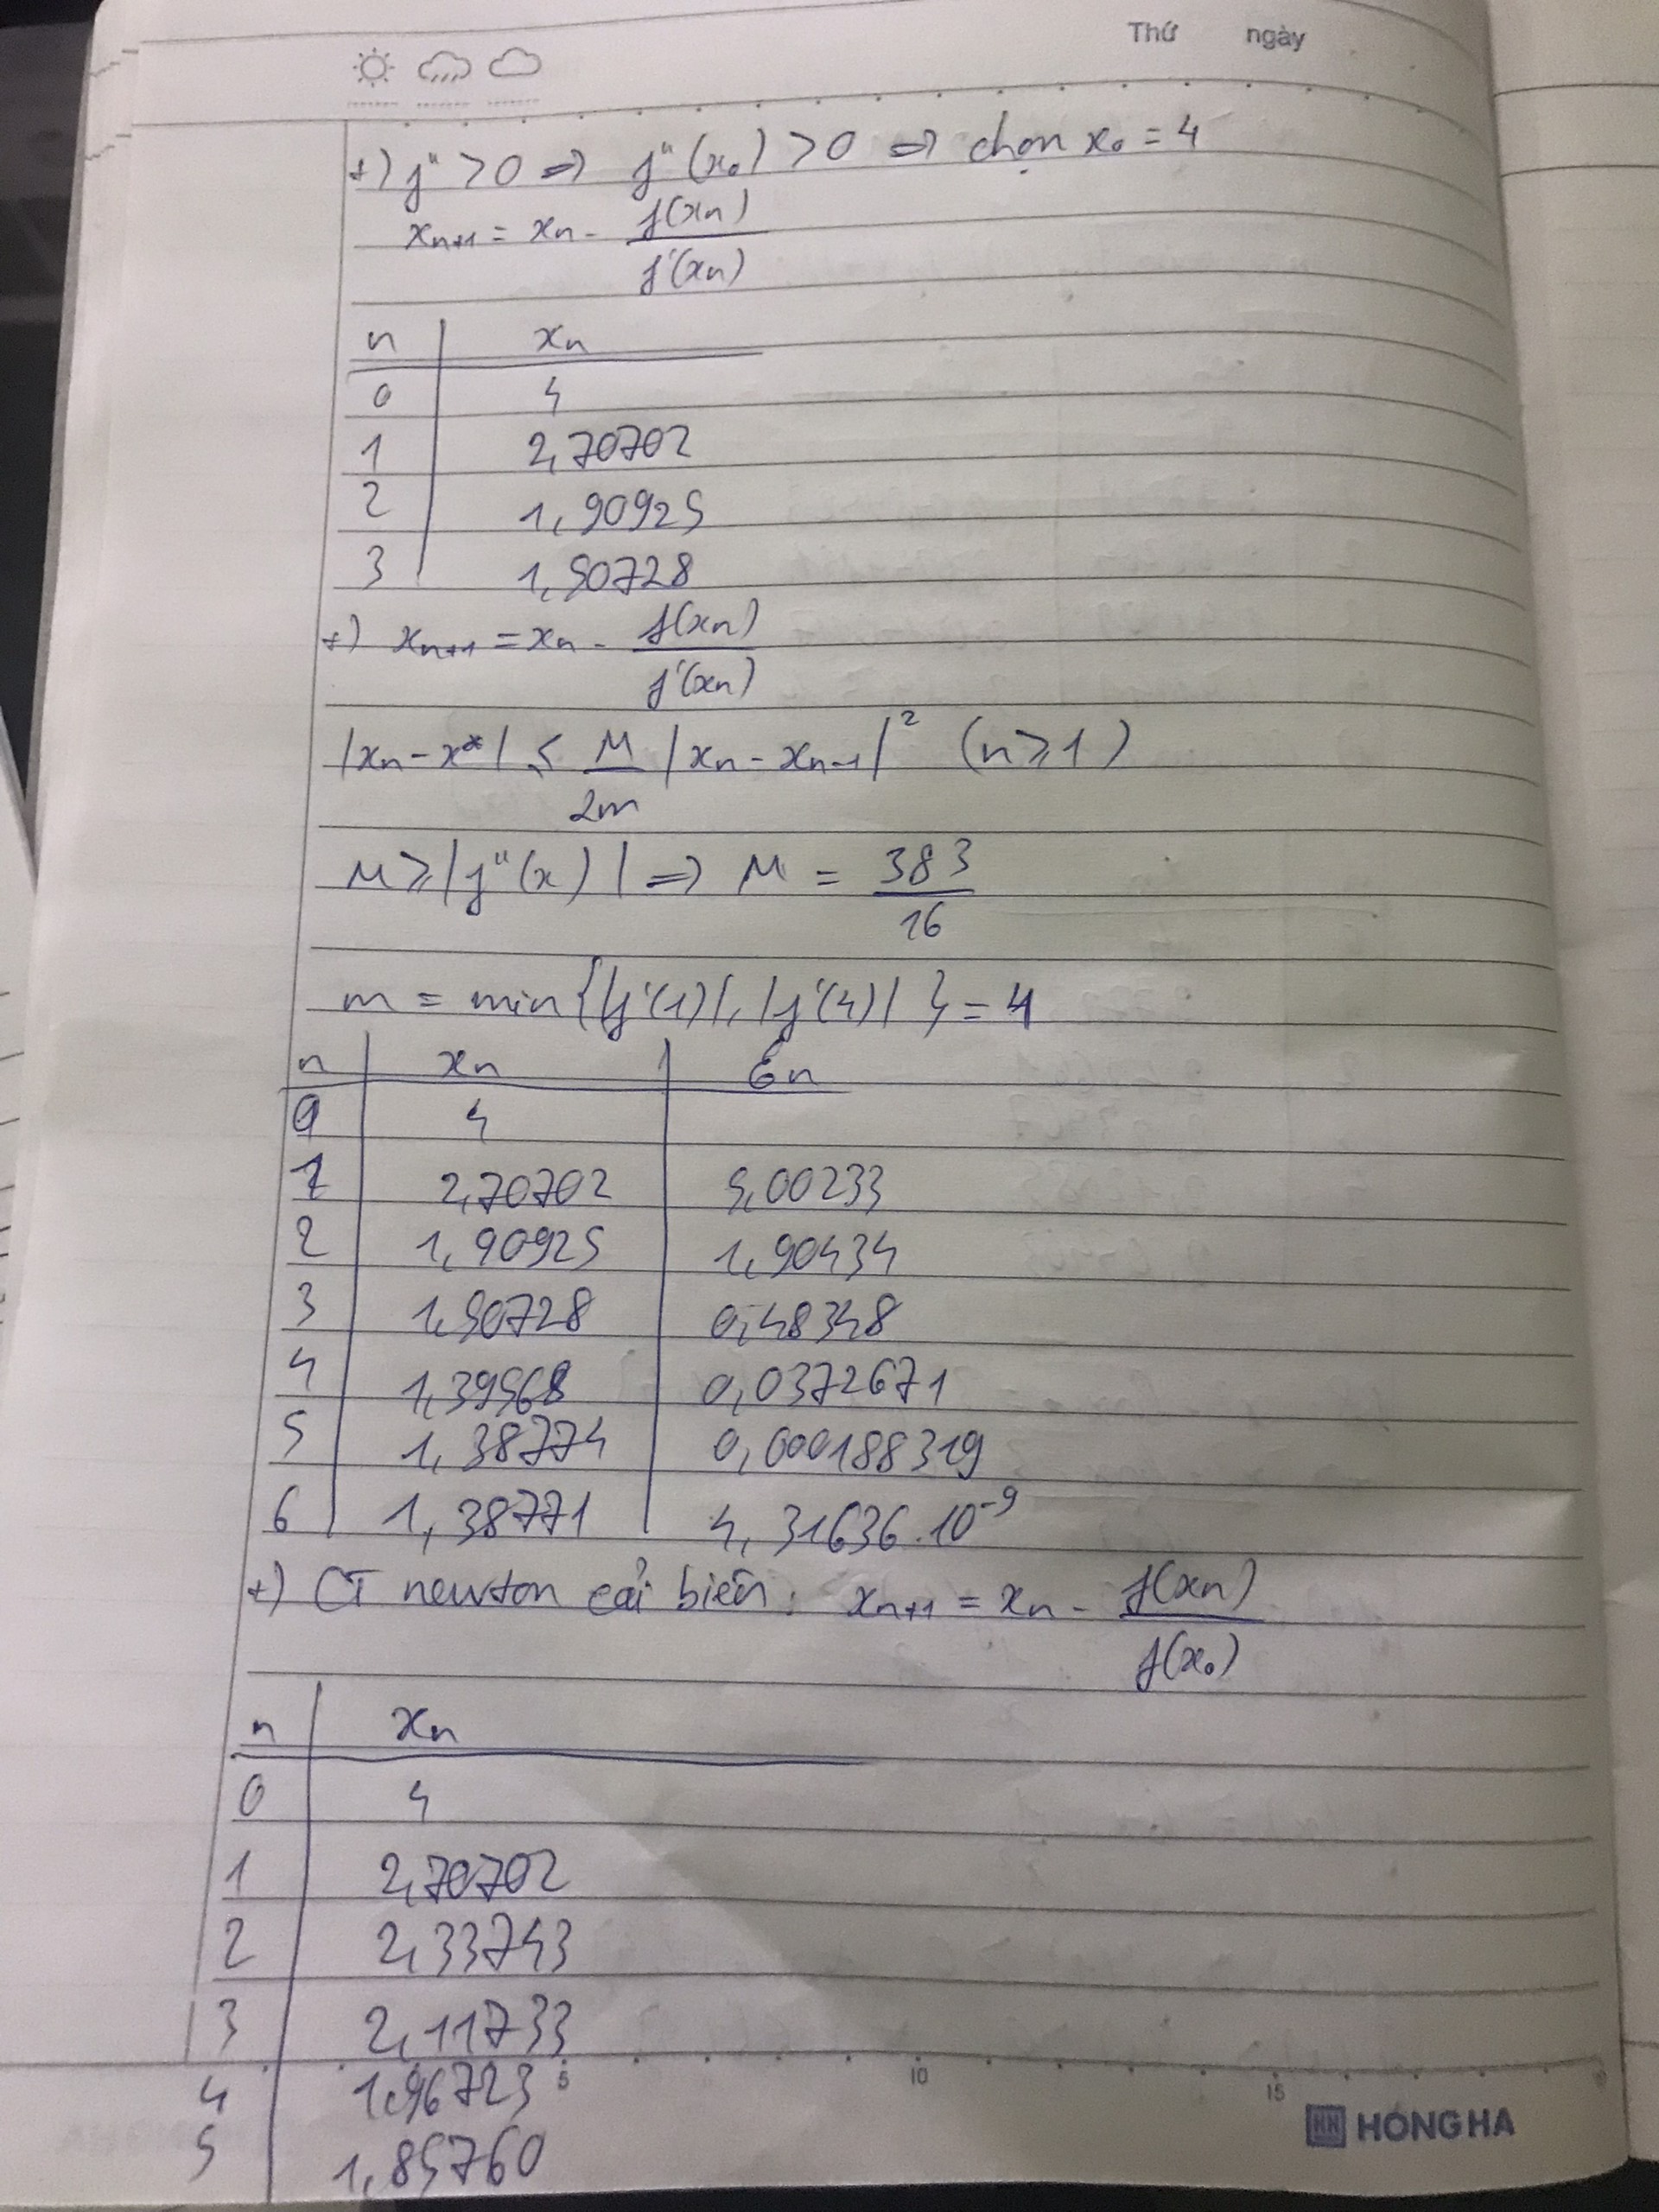 Thứ ngày
+) f" > 0 => f"(x₀) > 0 => chọn x₀ = 4
xₙ₊₁ = xₙ - f(xₙ) / f'(xₙ)
n | xₙ
0 | 4
1 | 2,70702
2 | 1,90925
3 | 1,50728
+) xₙ₊₁ = xₙ - f(xₙ) / f'(xₙ)
|xₙ - x*| ≤ M / 2m |xₙ - xₙ₋₁|² (n ≥ 1)
M ≥ |f"(x)| => M = 383 / 16
m = min{|f'(1)|, |f'(4)|} = 4
n | xₙ | εₙ
0 | 4
1 | 2,70702 | 5,00233
2 | 1,90925 | 1,90434
3 | 1,50728 | 0,48348
4 | 1,39568 | 0,0372671
5 | 1,38774 | 0,000188319
6 | 1,38771 | 4,31636.10⁻⁹
+) CT newton cải biên: xₙ₊₁ = xₙ - f(xₙ) / f(x₀)
n | xₙ
0 | 4
1 | 2,70702
2 | 2,33743
3 | 2,11733
4 | 1,96723
5 | 1,85760
5 10 15
HH HONG HA